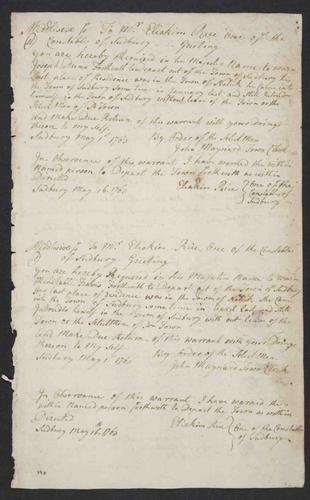 Middlesex Ss To Mr. Eliakim Rice one of the
Constable of Sudbury Greeting
You are hereby Required in his Majestys Name to warn
Joseph Dunn forthwith to depart out of the Town of Sudbury the
Last place of Residence was in the Town of Natick he came into
the Town of Sudbury some time in January last and Still Resideth
himself in the Town of Sudbury without leave of the Town or the
Select Men of sd Town
and make Due Return of this warrant with your Doings
thereon to my Self
Sudbury May 1st 1760 By Order of the Select Men
John Maynard Town Clerk
In Observance of this warrant I have warned the within
Named person to Depart the Town forthwith as within
Directed
Sudbury May 16 1760 Eliakim Rice One of the
Constables of
Sudbury
Middlesex Ss To Mr. Eliakim Rice, One of the Constables
of Sudbury Greeting
You are hereby Required in his Majestys Name to warn
forthwith to Depart out of the Town of Sudbury
last place of Residence was in the Town of Natick She Came
into the Town of Sudbury Some time in last and Still
Resideth herself in the Town of Sudbury with out leave of the
Town or the Select Men of sd Town
and Make Due Return of this warrant with your Doings
thereon to My Self By Order of the Select Men
Sudbury May 1st 1760
John Maynard Town Clerk
In Observance of this warrant, I have warned the
within Named person forthwith to Depart the Town as within
Directed
Sudbury May 16th 1760 Eliakim Rice One of the Constables
of Sudbury